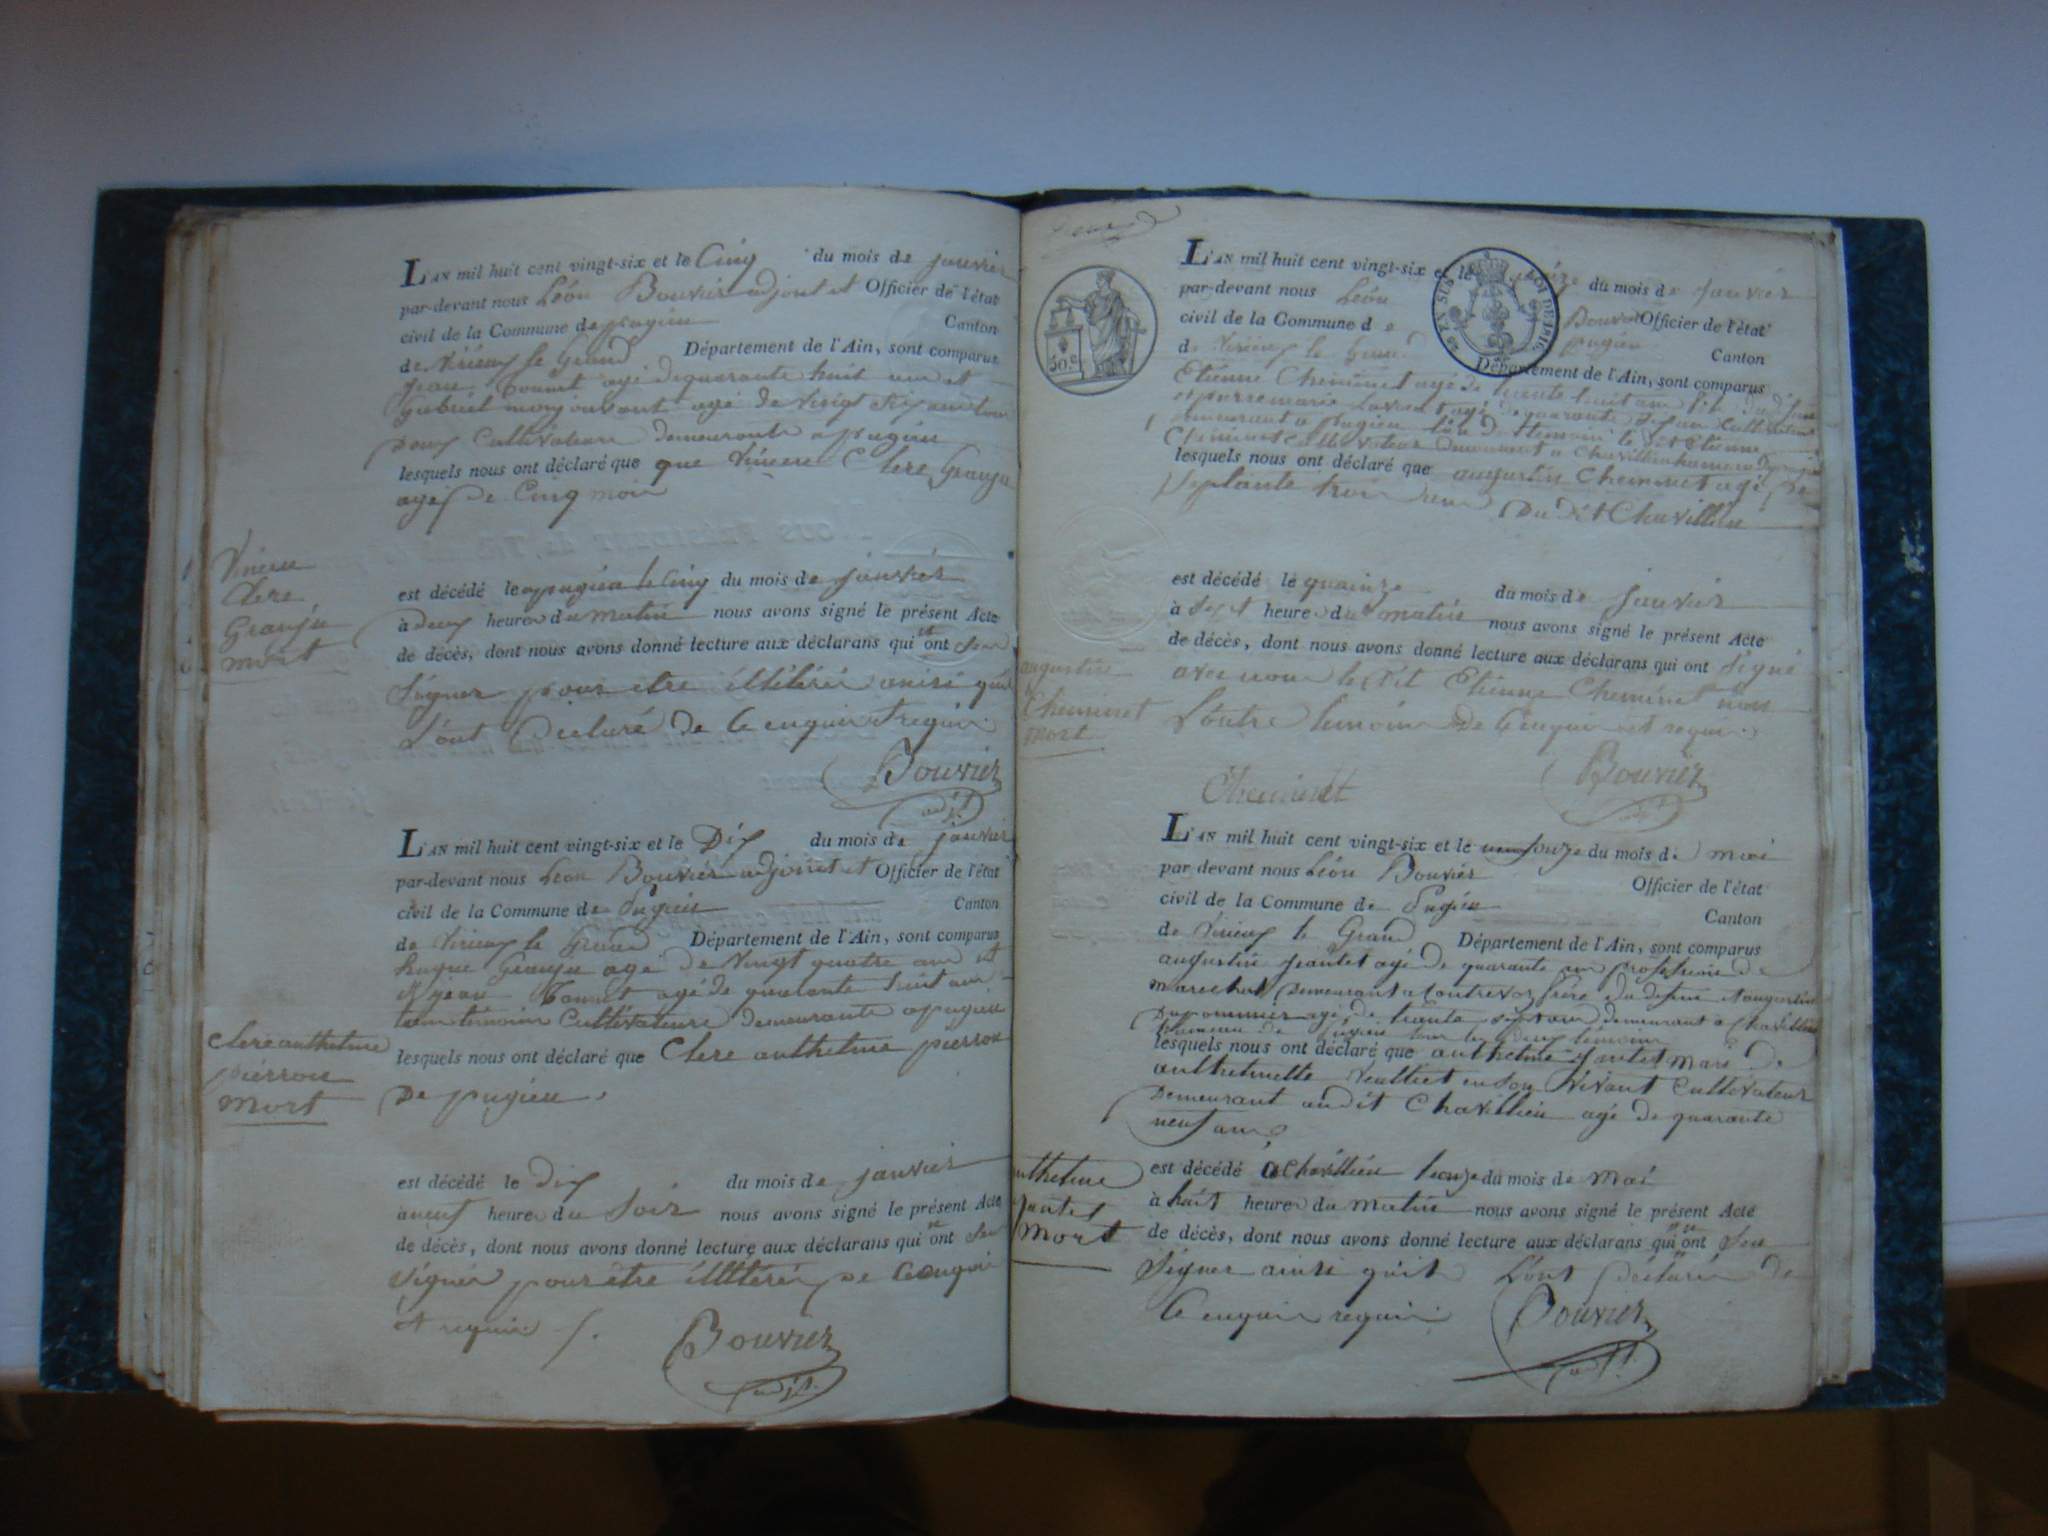 L'AN mil huit cent vingt-six et le Cinq du mois de janvier
par-devant nous Léon Bouvier adjoint et Officier de l'état
civil de la Commune de pugieu Canton
de Virieux le Grand Département de l'Ain, sont comparus
jean agé de quarante huit ans et
Gabriel monjouvant agé de vingt ans tous
deux Cultivateurs demeurants a pugieu
lesquels nous ont déclaré que que Clere Granju
agé de Cinq mois
Clere
Granju
mort
est décédé le a pugieu le Cinq du mois de janvier
à deux heures du matin nous avons signé le présent Acte
de décès, dont nous avons donné lecture aux déclarans qui n'ont seu
signer pour etre illitéré ainsi qu'il
L'ont Déclaré de Ce enquis et requis.
Bouvier
adjt
L'AN mil huit cent vingt-six et le Dix du mois de janvier
par-devant nous Léon Bouvier adjoint et Officier de l'état
civil de la Commune de Pugieu Canton
de Virieux le Grand Département de l'Ain, sont comparus
hugue Granju agé de vingt quatre ans et
et jean agé de quarante huit ans
témoins Cultivateurs demeurants a pugieu
lesquels nous ont déclaré que Clere anthelme pierron
De pugieu.
Clere anthelme
pierron
mort
est décédé le Dix du mois de janvier
a neuf heures du Soir nous avons signé le présent Acte
de décès, dont nous avons donné lecture aux déclarans qui n'ont seu
signer pour être illitéré de Ce enquis
et requis
Bouvier
adjt.
50 c.
EN SUS LOI DE 1816.
L'AN mil huit cent vingt-six et le du mois de janvier
par-devant nous Léon Bouvier Officier de l'état
civil de la Commune de pugieu Canton
de Virieux le Grand Département de l'Ain, sont comparus
Etienne Cheminet agé de trente huit ans
marie agé de quarante ans Cultivateur
demeurant a pugieu témoin le dit Etienne
Cheminet Cultivateur demeurant a Chavillieu hameau De pugieu
lesquels nous ont déclaré que augustin Cheminet agé de
Septante trois Du dit Chavillieu
augustin
Cheminet
mort
est décédé le quainze du mois de janvier
à Sept heures du matin nous avons signé le présent Acte
de décès, dont nous avons donné lecture aux déclarans qui ont Signé
avec nous le dit Etienne Cheminet non
L'autre temoin De Ce enquis et requis.
Cheminet
Bouvier
adjt
L'AN mil huit cent vingt-six et le onze du mois de mai
par devant nous Léon Bouvier Officier de l'état
civil de la Commune de Pugieu Canton
de Virieux le Grand Département de l'Ain, sont comparus
augustin jeantet agé de quarante ans profession de
marechal Demeurant a Contrevoz frère du défunt et augustin
Dupommier agé de trente sept ans demeurant a Chavillieu
hameau de Pugieu tous les deux témoins
lesquels nous ont déclaré que anthelme jantet Mari de
anthelmette en Son Vivant Cultivateur
Demeurant au dit Chavillieu agé de quarante
neuf ans
anthelme
jantet
mort
est décédé a Chavillieu le onze du mois de mai
à huit heures du matin nous avons signé le présent Acte
de décès, dont nous avons donné lecture aux déclarans qui n'ont Seu
Signer ainsi qu'il L'ont Déclaré de
Ce enquis requis.
Bouvier
adjt.